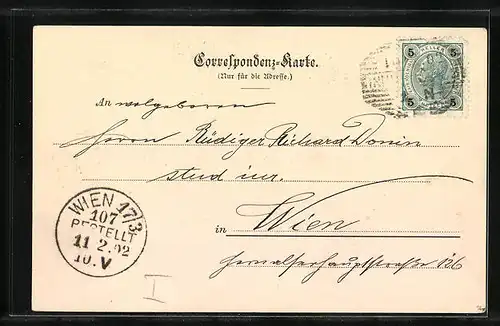 Correspondenz-Karte.
(Nur für die Adresse.)
5 HELLER 5
5 5
An wolgeboren
Herrn Rüdiger Richard Donin
stud iur.
in Wien
Hernalserhauptstraße 126
WIEN 17/3
107
BESTELLT
11 2.02
10.V
I